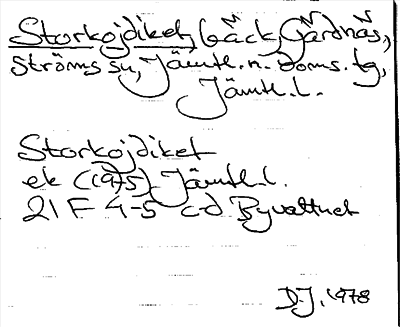 Storkojdiket, bäck, Gärdnäs,
Ströms sn, Jämtl. n. doms. tg,
Jämtl. l.
Storkojdiket
ek (1975) Jämtl. l.
21 F 4-5 c-d Byvattnet
D.J, 1978